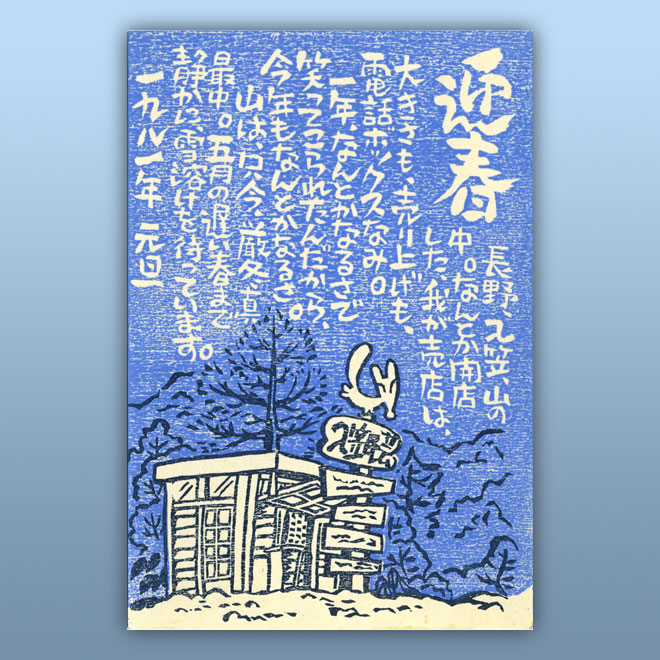 迎春
長野、入笠、山の
中。なんとか開店
した、我が売店は、
大きさも、売り上げも、
電話ボックスなみ。
一年、なんとかなるさで
笑ってこられたんだから、
今年もなんとかなるさ。
山は、只、今、厳冬、真
最中。五月の遅い春まで
静かに、雪溶けを待っています。
一九八一年 元旦